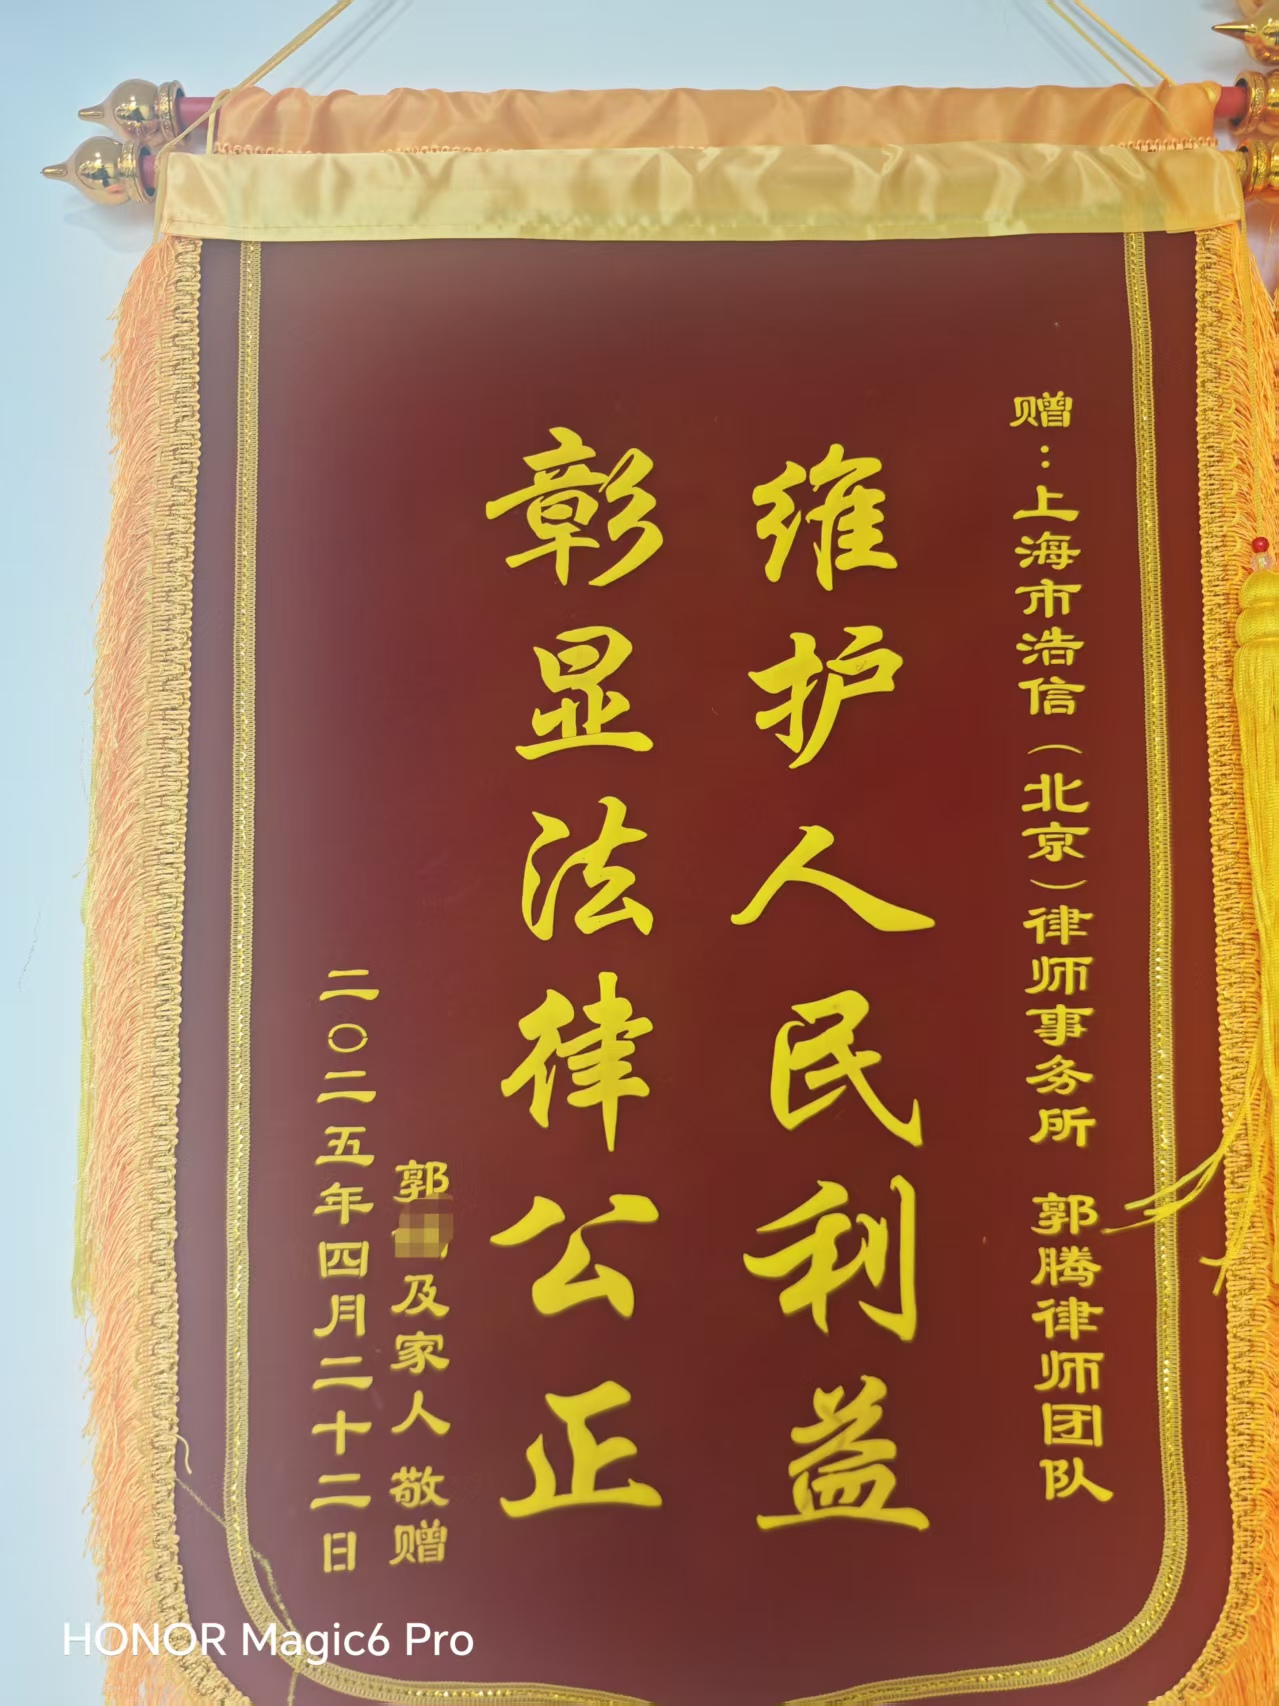 赠：上海市浩信（北京）律师事务所 郭腾律师团队
维护人民利益
彰显法律公正
郭 及家人 敬赠
二〇二五年四月二十二日
HONOR Magic6 Pro